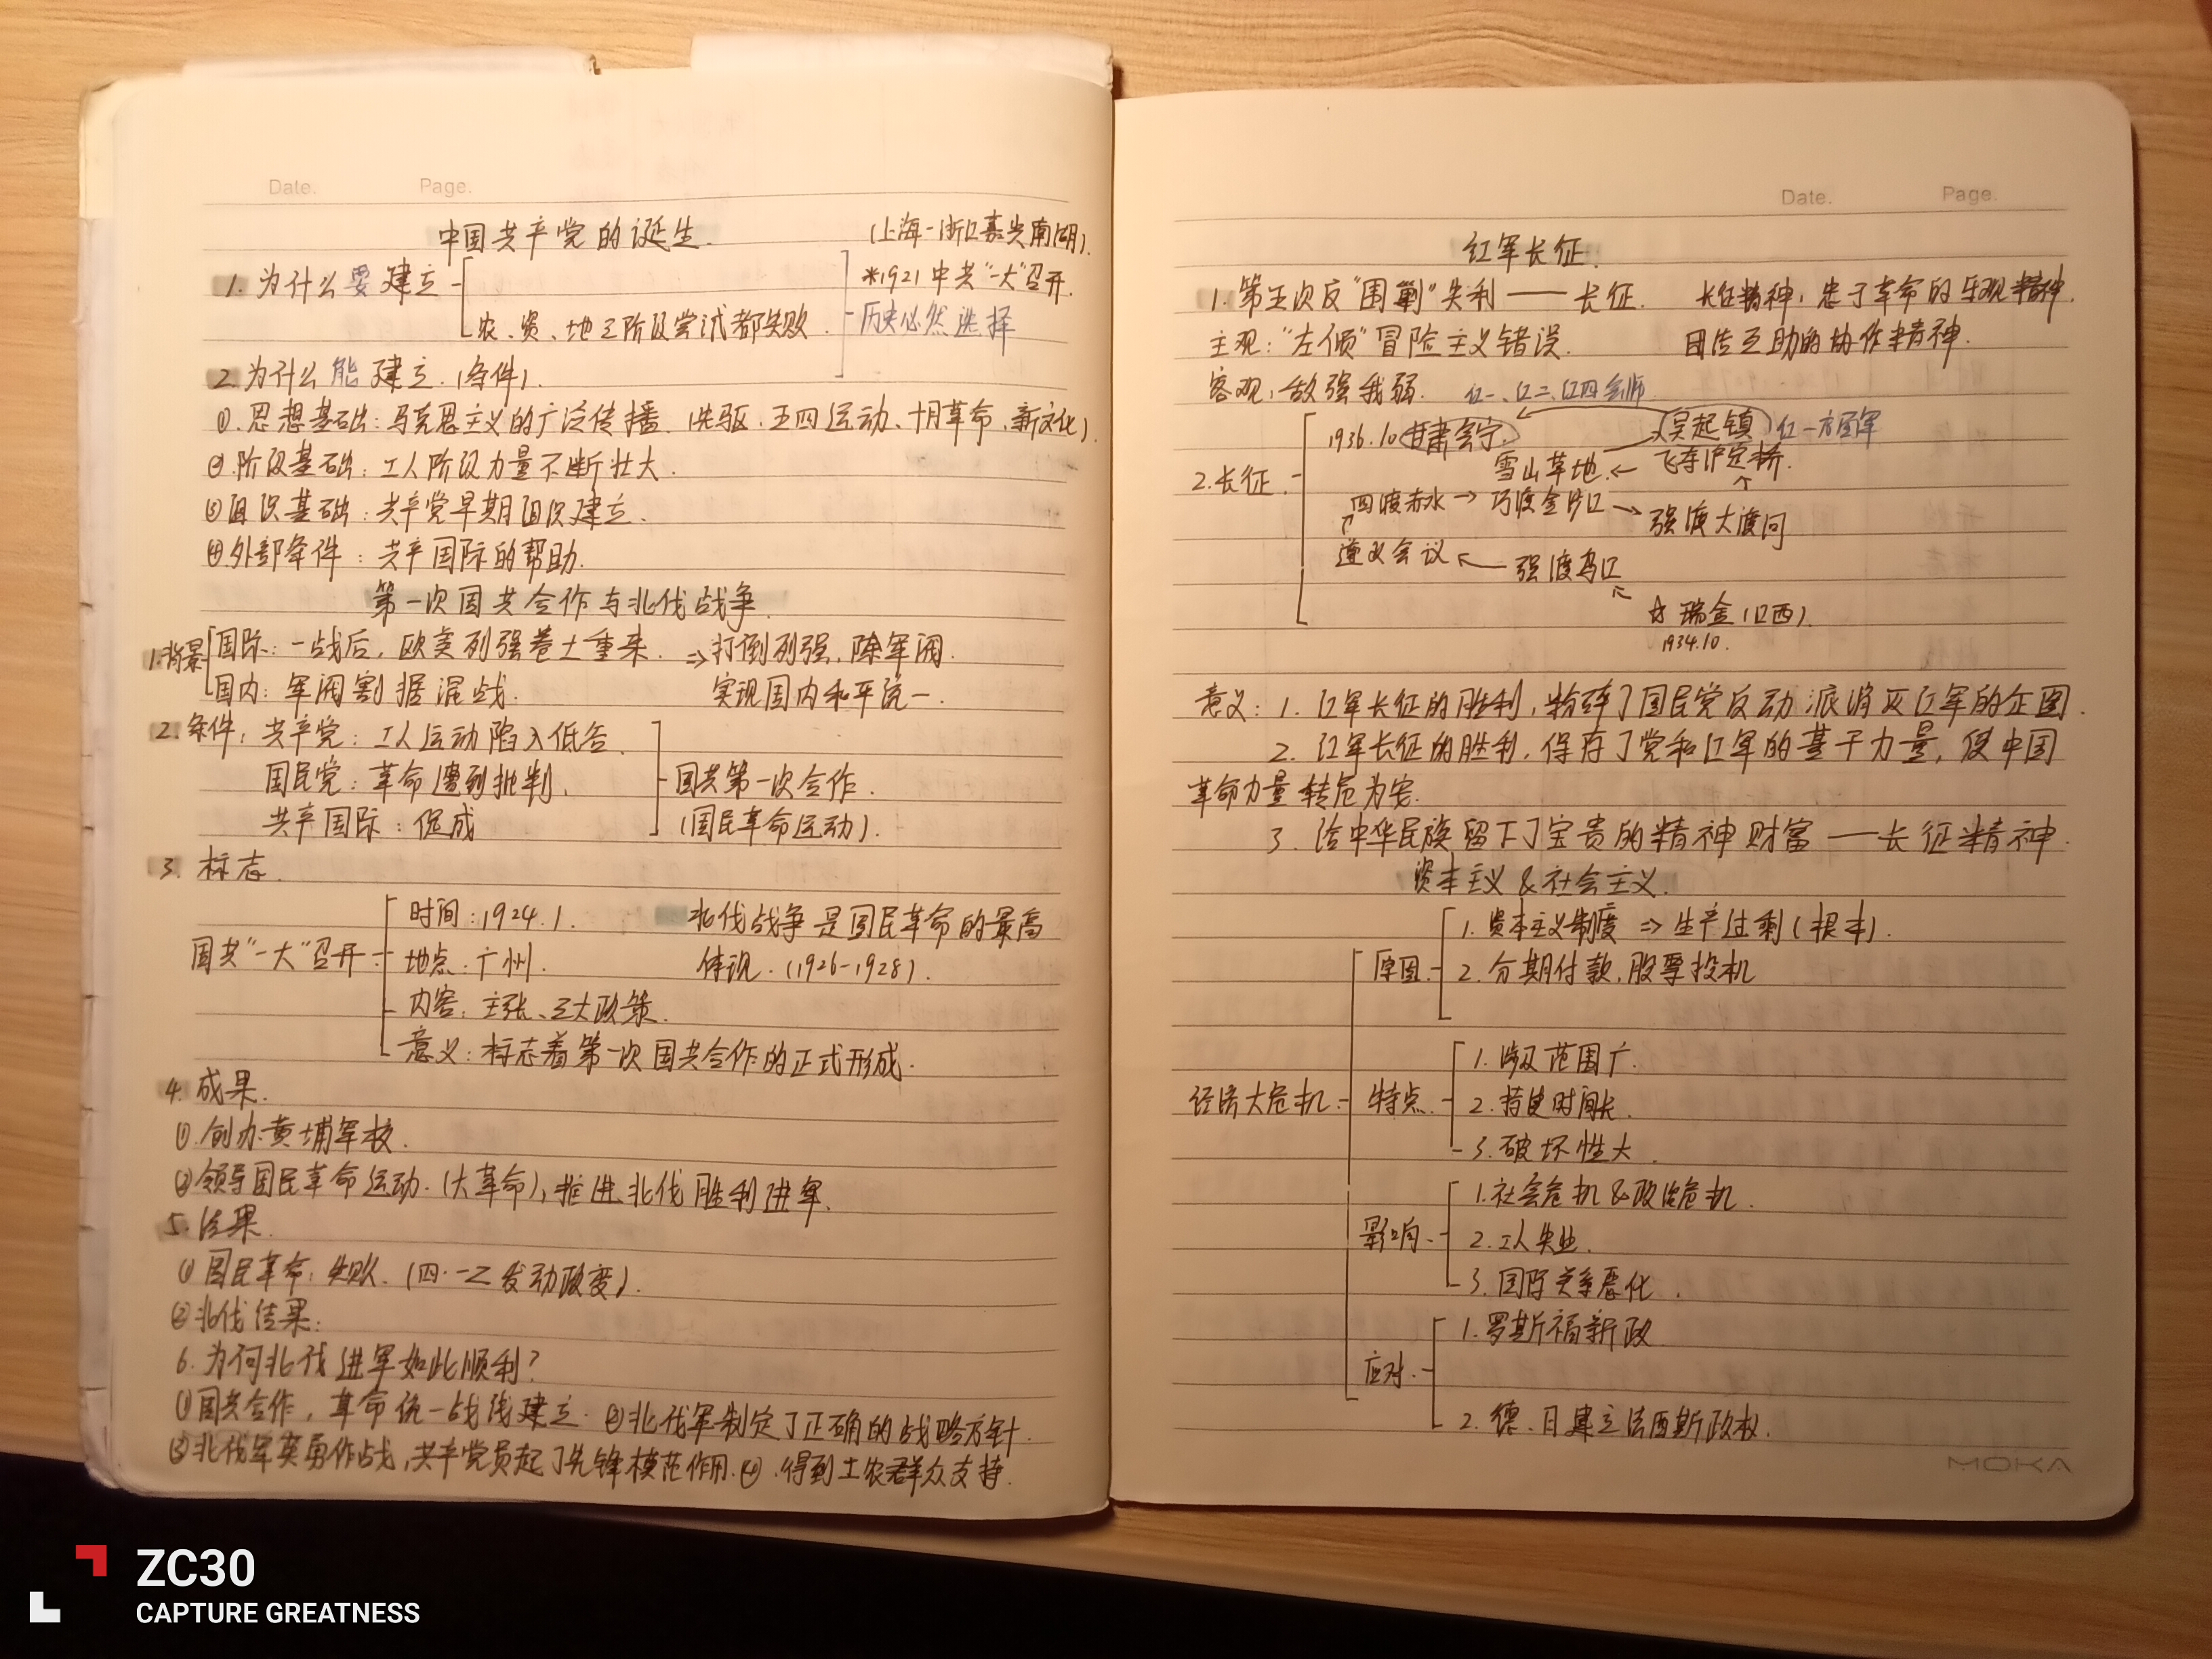 Date. Page.
中国共产党的诞生. (上海-浙江嘉兴南湖).
1. 为什么要建立 *1921中共"一大"召开.
农、资、地三阶级尝试都失败. 历史必然选择
2. 为什么能建立.(条件).
①.思想基础:马克思主义的广泛传播.(先驱、五四运动、十月革命、新文化).
②.阶级基础:工人阶级力量不断壮大.
③组织基础:共产党早期组织建立.
④外部条件:共产国际的帮助.
第一次国共合作与北伐战争
1.背景 国际:一战后,欧美列强卷土重来. ⇒打倒列强,除军阀.
国内:军阀割据混战. 实现国内和平统一.
2.条件:共产党:工人运动陷入低谷.
国民党:革命遭到批判. 国共第一次合作.
共产国际:促成 (国民革命运动).
3. 标志.
时间:1924.1. 北伐战争是国民革命的最高
国共"一大"召开 地点:广州. 体现.(1926-1928).
内容:主张、三大政策.
意义:标志着第一次国共合作的正式形成.
4. 成果.
①.创办黄埔军校.
②领导国民革命运动.(大革命),推进北伐胜利进军.
5. 结果.
①国民革命:失败.(四·一二发动政变).
②北伐结果:
6. 为何北伐进军如此顺利?
①国共合作,革命统一战线建立.②北伐军制定了正确的战略方针.
③北伐军英勇作战,共产党员起了先锋模范作用.④.得到工农群众支持.
Date. Page.
红军长征.
1. 第五次反"围剿"失利——长征. 长征精神:忠于革命的乐观精神.
主观:"左倾"冒险主义错误. 团结互助的协作精神.
客观:敌强我弱. 红一、红二、红四会师
1936.10 甘肃会宁. 吴起镇 红一方面军
2.长征 雪山草地.← 飞夺泸定桥.
四渡赤水→巧渡金沙江→强渡大渡河
遵义会议←强渡乌江
☆瑞金(江西).
1934.10.
意义:1. 红军长征的胜利,粉碎了国民党反动派消灭红军的企图.
2. 红军长征的胜利,保存了党和红军的基干力量,使中国
革命力量转危为安.
3. 给中华民族留下了宝贵的精神财富——长征精神.
资本主义&社会主义.
1. 资本主义制度⇒生产过剩(根本).
原因 2. 分期付款,股票投机
1. 涉及范围广.
经济大危机 特点 2. 持续时间长.
3. 破坏性大.
1.社会危机&政治危机.
影响 2.工人失业.
3. 国际关系恶化.
1.罗斯福新政
应对
2. 德、日建立法西斯政权.
MOKA
ZC30
CAPTURE GREATNESS